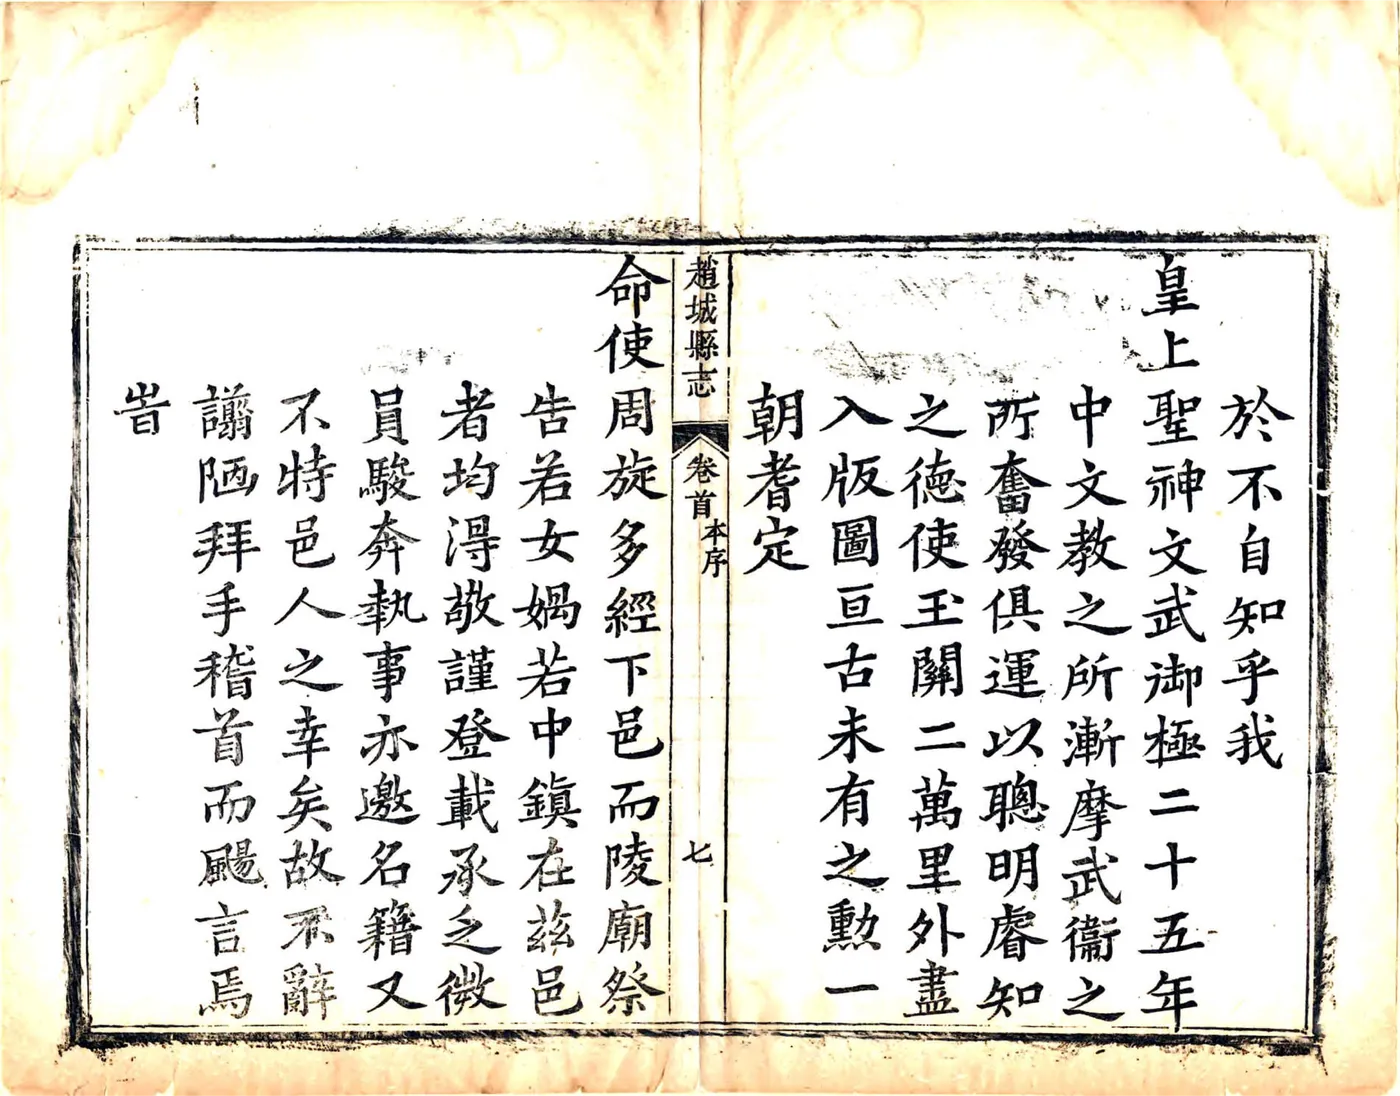 於不自知乎我
皇上聖神文武御極二十五年
中文教之所漸摩武衞之
所奮發俱運以聰明睿知
之德使玉關二萬里外盡
入版圖亘古未有之勲一
朝耆定
趙城縣志
卷首
本序
七
命使周旋多經下邑而陵廟祭
告若女媧若中鎭在茲邑
者均淂敬謹登載承乏微
員駿奔執事亦邀名籍又
不特邑人之幸矣故不辭
譾陋拜手稽首而颺言焉
旹